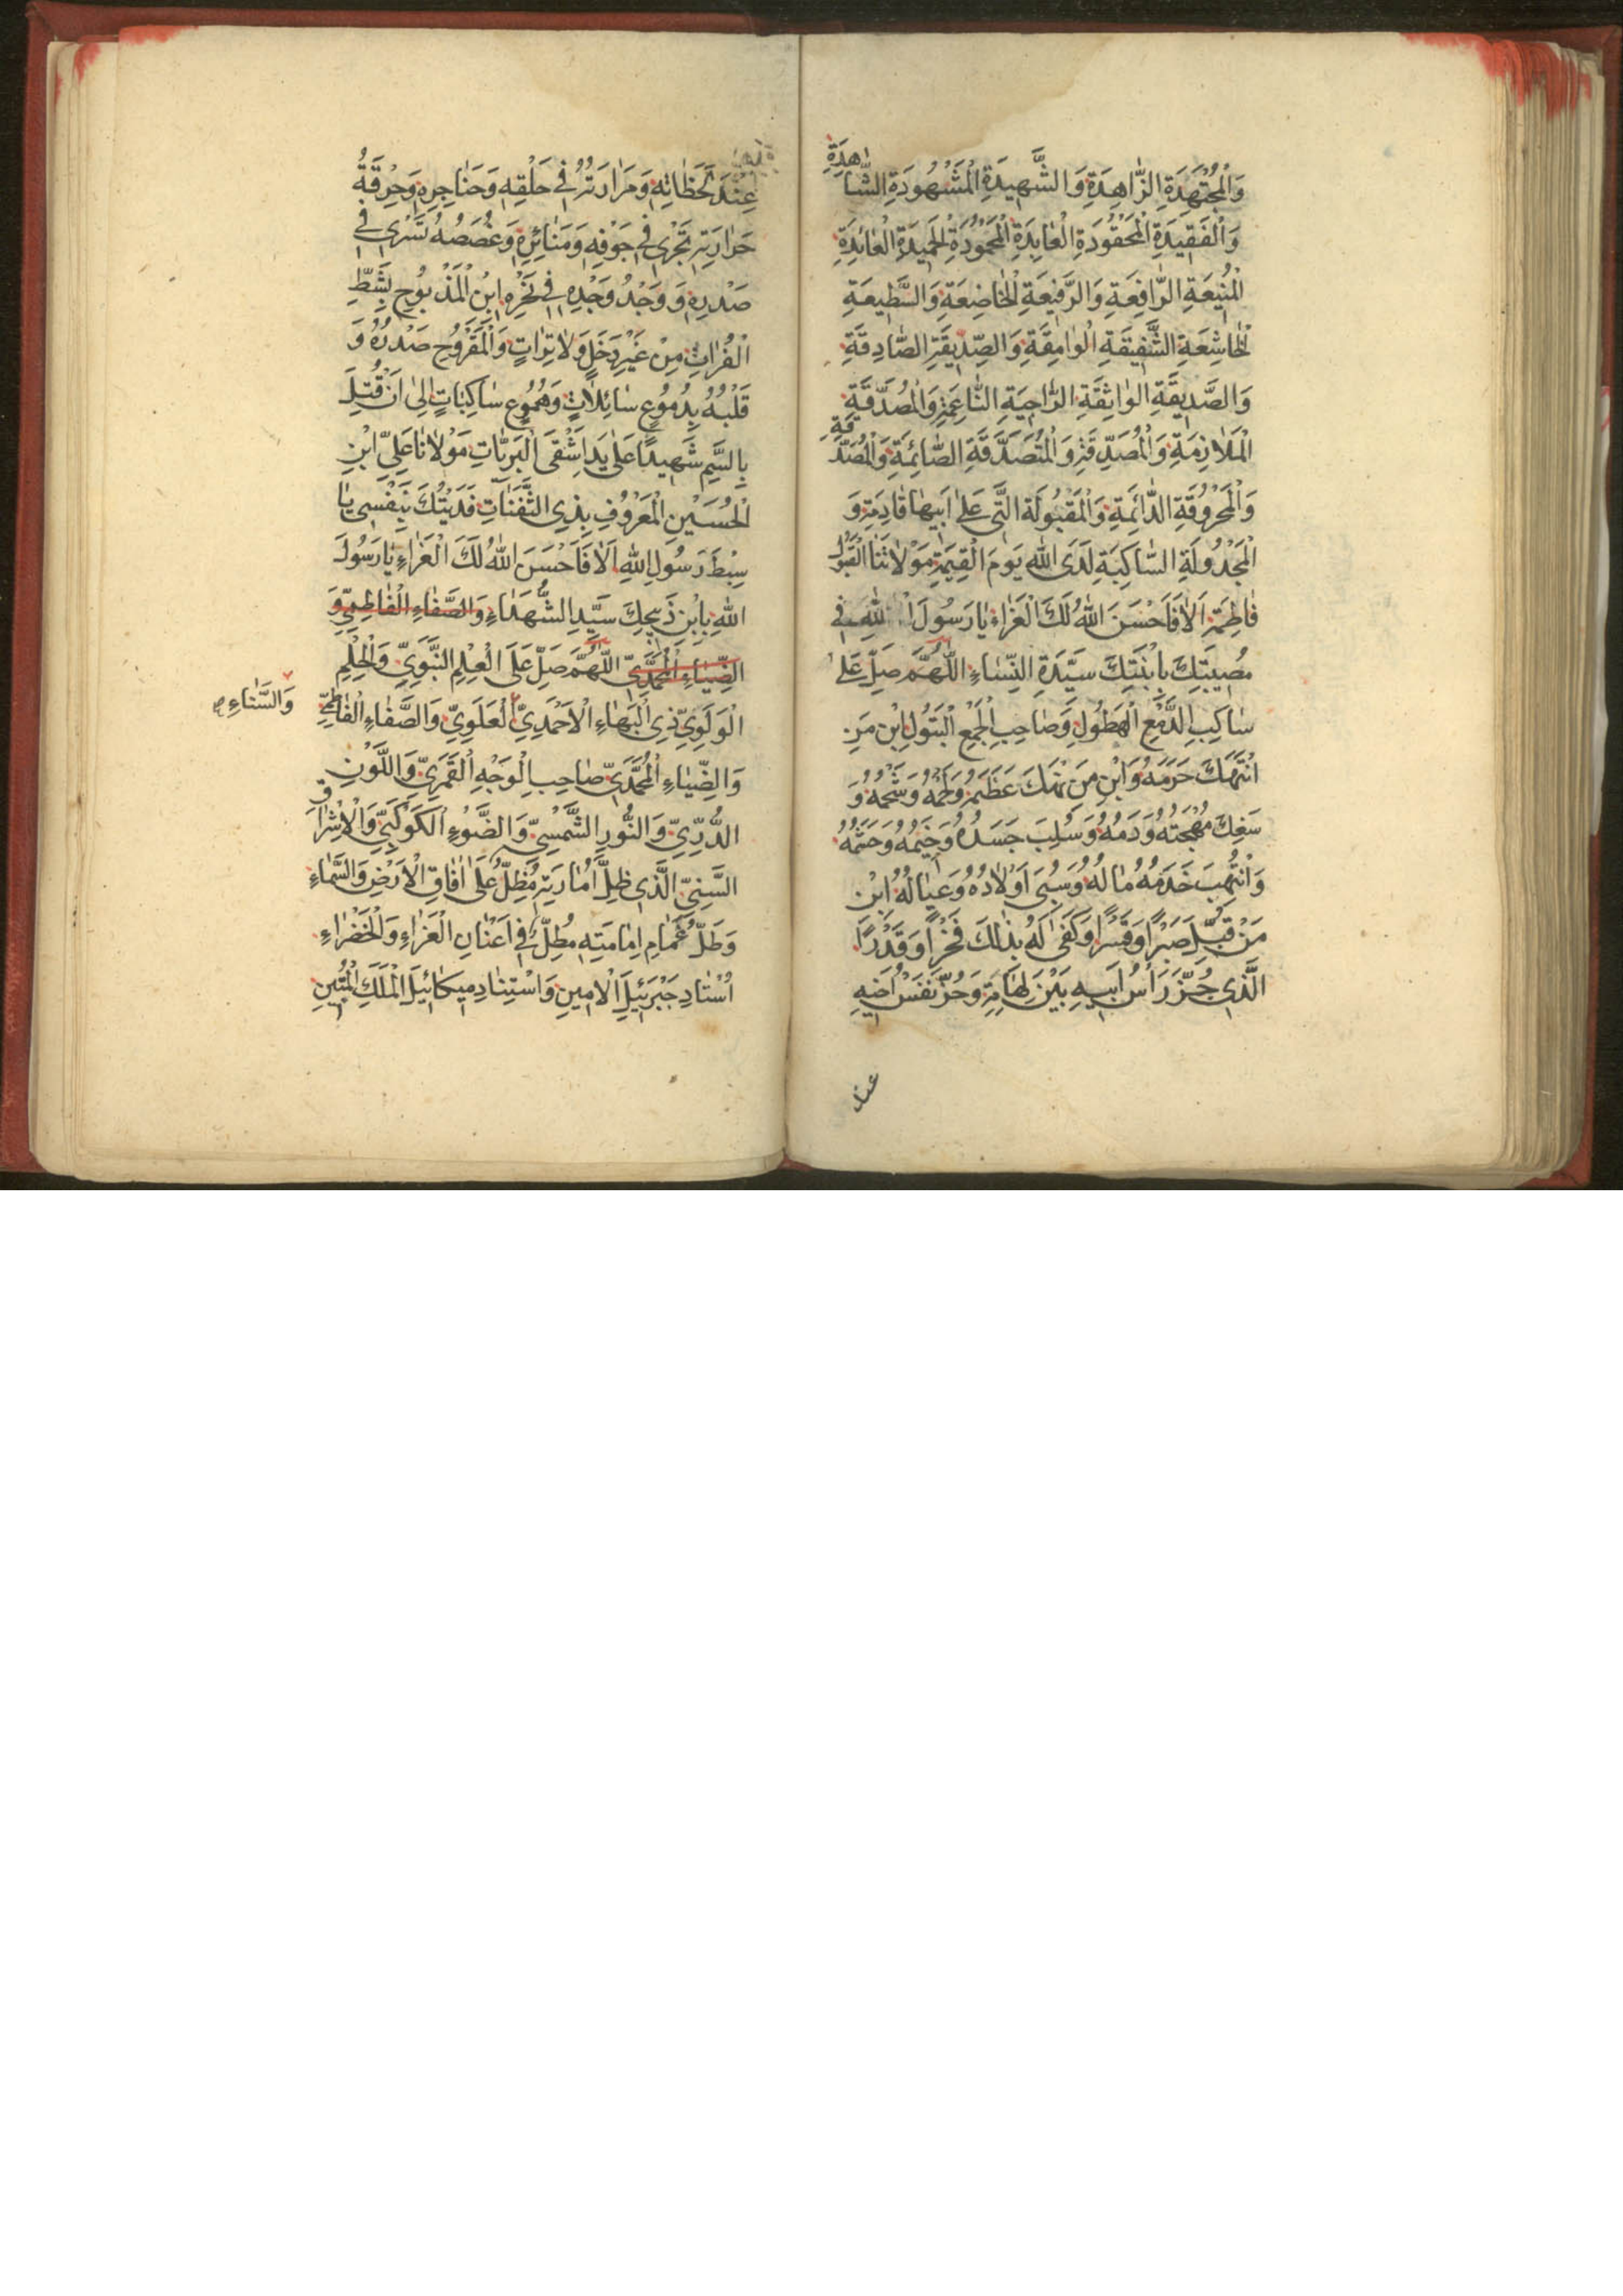 وَالْمُجْتَهِدَةِ الزّٰاهِدَةِ وَالشَّهِيدَةِ الْمَشْهُودَةِ الشّٰاهِدَةِ
وَالْفَقِيدَةِ الْمَحْقُودَةِ الْعٰابِدَةِ الْمَحْمُودَةِ الْحَمِيدَةِ الْعٰائِدَةِ
الْمَنِيعَةِ الرّٰافِعَةِ وَالرَّفِيعَةِ الْخٰاضِعَةِ وَالسَّطِيعَةِ
الْخٰاشِعَةِ الشَّفِيقَةِ الْوٰامِقَةِ وَالصِّدِّيقَةِ الصّٰادِقَةِ
وَالصَّدِيقَةِ الْوٰاثِقَةِ الرّٰاجِيَةِ النّٰاعِمَةِ وَالْمُصَدَّقَةِ
الْمُلٰازِمَةِ وَالْمُصَدِّقَةِ وَالْمُتَصَدِّقَةِ الصّٰائِمَةِ وَالْمُصَدَّقَةِ
وَالْمَحْرُوقَةِ الدّٰائِمَةِ وَالْمَقْبُولَةِ الَّتِي عَلٰى اَبِيهٰا قٰادِمَةٍ وَ
الْمَجْدُولَةِ السّٰاكِبَةِ لَدَى اللّٰهِ يَوْمَ الْقِيٰمَةِ مَوْلٰاتِنَا الْبَتُولِ
فٰاطِمَةَ اَلٰا فَاَحْسَنَ اللّٰهُ لَكَ الْعَزٰاءَ يٰا رَسُولَ اللّٰهِ فِي
مُصِيبَتِكَ بِابْنَتِكَ سَيِّدَةِ النِّسٰاءِ اَللّٰهُمَّ صَلِّ عَلٰى
سٰاكِبِ الدَّمْعِ الْهَطُولِ وَصٰاحِبِ الْجَمْعِ الْبَتُولِ ابْنِ مَنِ
انْتُهِكَ حَرَمُهُ وَابْنِ مَنْ نُهِكَ عَظْمُهُ وَلَحْمُهُ وَشَحْمُهُ وَ
سُفِكَ مُهْجَتُهُ وَدَمُهُ وَسُلِبَ جَسَدُهُ وَخِيَمُهُ وَحَشَمُهُ
وَانْتُهِبَ خَدَمُهُ مٰالُهُ وَسُبِيَ اَوْلٰادُهُ وَعِيٰالُهُ ابْنِ
مَنْ قُتِلَ صَبْرًا وَقَسْرًا وَكَفٰى لَهُ بِذٰلِكَ فَخْرًا وَقَدْرًا
الَّذِي جُزَّ رَأْسُ اَبِيهِ بَيْنَ لِهٰامِهِ وَحُزَّ نَفَسُ اَخِيهِ
عند
عِنْدَ لَحَظٰاتِهِ وَمَرٰارَتُهُ فِي حَلْقِهِ وَحَنٰاجِرِهِ وَحُرْقَةُ
حَرٰارَتِهِ تَجْرِي فِي جَوْفِهِ وَمَنٰائِرِهِ وَغُصَصُهُ تَسْرِي فِي
صَدْرِهِ وَ وَجْدُ وَجْدِهِ فِي نَحْرِهِ ابْنِ الْمَذْبُوحِ بِشَطِّ
الْفُرٰاتِ مِنْ غَيْرِ دَخَلٍ وَلٰا تِرٰاتٍ وَالْمَقْرُوحِ صَدْرُهُ وَ
قَلْبُهُ بِدُمُوعٍ سٰائِلٰاتٍ وَهُمُوعٍ سٰاكِبٰاتٍ اِلٰى اَنْ قُتِلَ
بِالسَّمِّ شَهِيدًا عَلٰى يَدِ اَشْقَى الْبَرِيّٰاتِ مَوْلٰانٰا عَلِيِّ ابْنِ
الْحُسَيْنِ الْمَعْرُوفِ بِذِي الثَّفَنٰاتِ فَدَيْتُكَ بِنَفْسِي يٰا
سِبْطَ رَسُولِ اللّٰهِ اَلٰا فَاَحْسَنَ اللّٰهُ لَكَ الْعَزٰاءَ يٰا رَسُولَ
اللّٰهِ بِابْنِ ذَبِيحِكَ سَيِّدِ الشُّهَدٰاءِ وَالصَّفٰاءِ الْفٰاطِمِيِّ وَ
الضِّيٰاءِ الْمُحَمَّدِيِّ اَللّٰهُمَّ صَلِّ عَلَى الْعِلْمِ النَّبَوِيِّ وَالْحِلْمِ
الْوَلَوِيِّ ذِي الْبَهٰاءِ الْاَحْمَدِيِّ الْعَلَوِيِّ وَالصَّفٰاءِ الْفٰاطِمِيِّ
وَالسَّنٰاءِ
وَالضِّيٰاءِ الْمُحَمَّدِيِّ صٰاحِبِ الْوَجْهِ الْقَمَرِيِّ وَاللَّوْنِ
الدُّرِّيِّ وَالنُّورِ الشَّمْسِيِّ وَالضَّوْءِ الْكَوْكَبِيِّ وَالْاِشْرٰاقِ
السَّنِيِّ الَّذِي ظِلُّ اَمٰارَتِهِ مُظِلٌّ عَلٰى اٰفٰاقِ الْاَرْضِ وَالسَّمٰاءِ
وَطَلُّ غَمٰامِ اِمٰامَتِهِ مُطِلٌّ فِي اَعْنٰانِ الْغَبْرٰاءِ وَالْخَضْرٰاءِ
اُسْتٰادِ جَبْرَئِيلَ الْاَمِينِ وَاسْتِنٰادِ مِيكٰائِيلَ الْمَلَكِ الْمُبِينِ